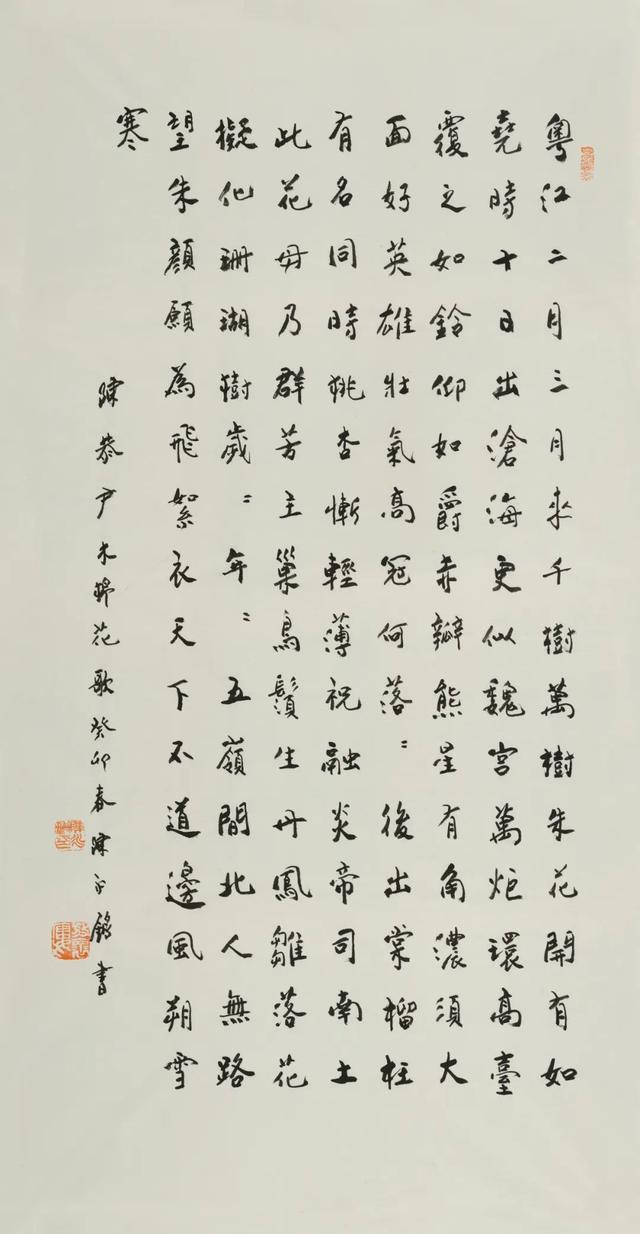 粵江二月三月來千樹萬樹朱花開有如
堯時十日出滄海更似魏宮萬炬環高臺
覆之如鈴仰如爵赤瓣熊星有角濃須大
面好英雄壯氣高冠何落〻後出棠榴枉
有名同時桃杏慚輕薄祝融炎帝司南土
此花毋乃群芳主巢鳥鬚生丹鳳雛落花
擬化珊瑚樹歲〻年〻五嶺間北人無路
望朱顏願為飛絮衣天下不道邊風朔雪
寒
陳恭尹木棉花歌癸卯春陳銘書